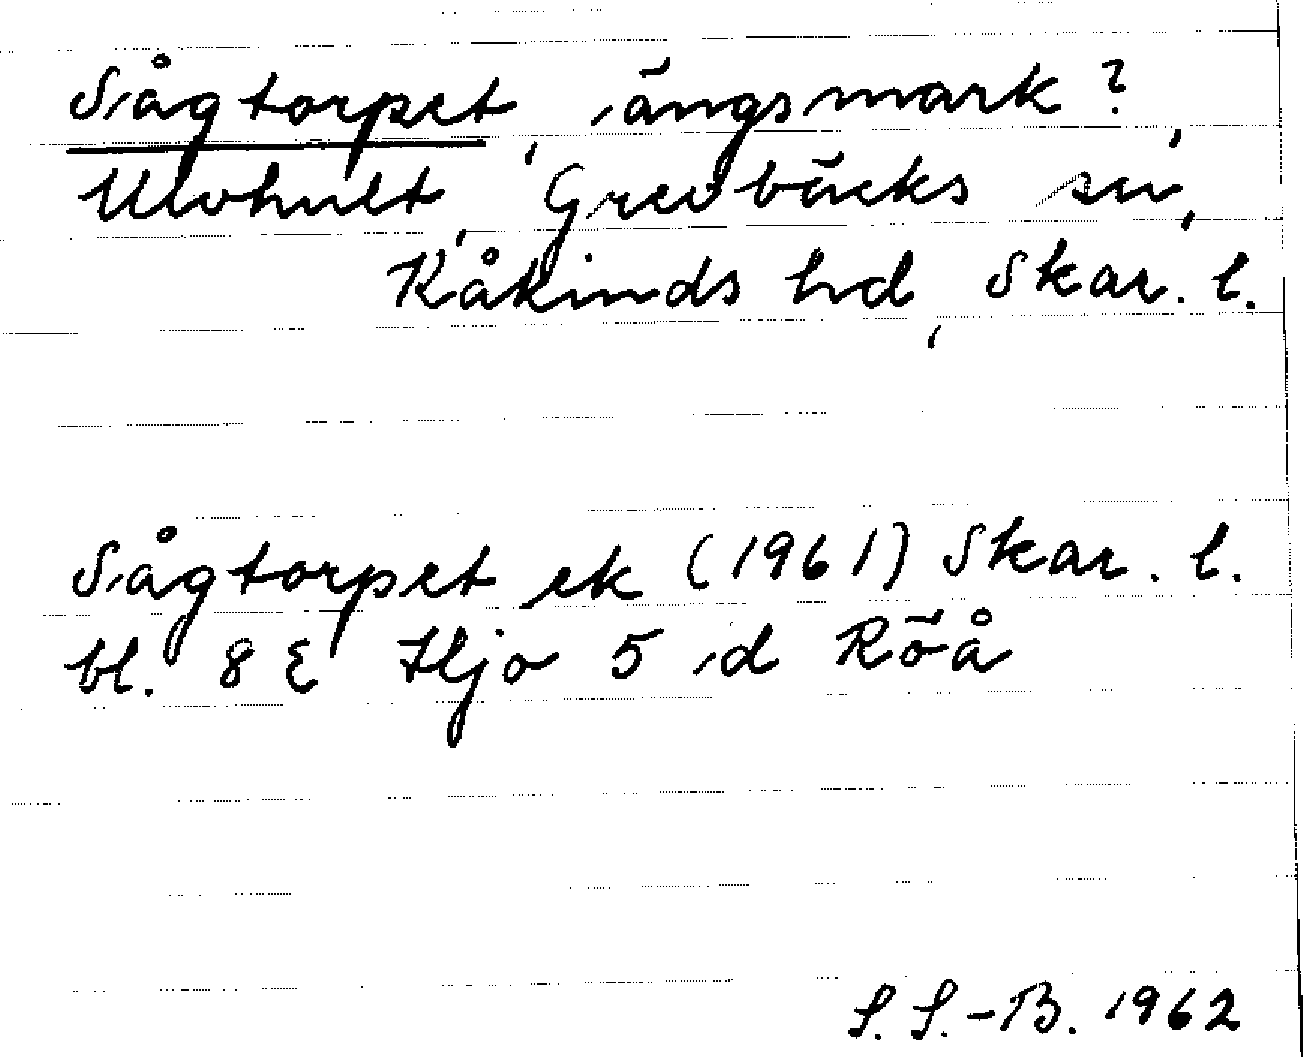 Sågtorpet, ängsmark?,
Ulvhult, Grevbäcks sn,
Kåkinds hd, Skar. l.
Sågtorpet ek (1961) Skar. l.
bl. 8 E Hjo 5 d Röå
S. S.-B. 1962